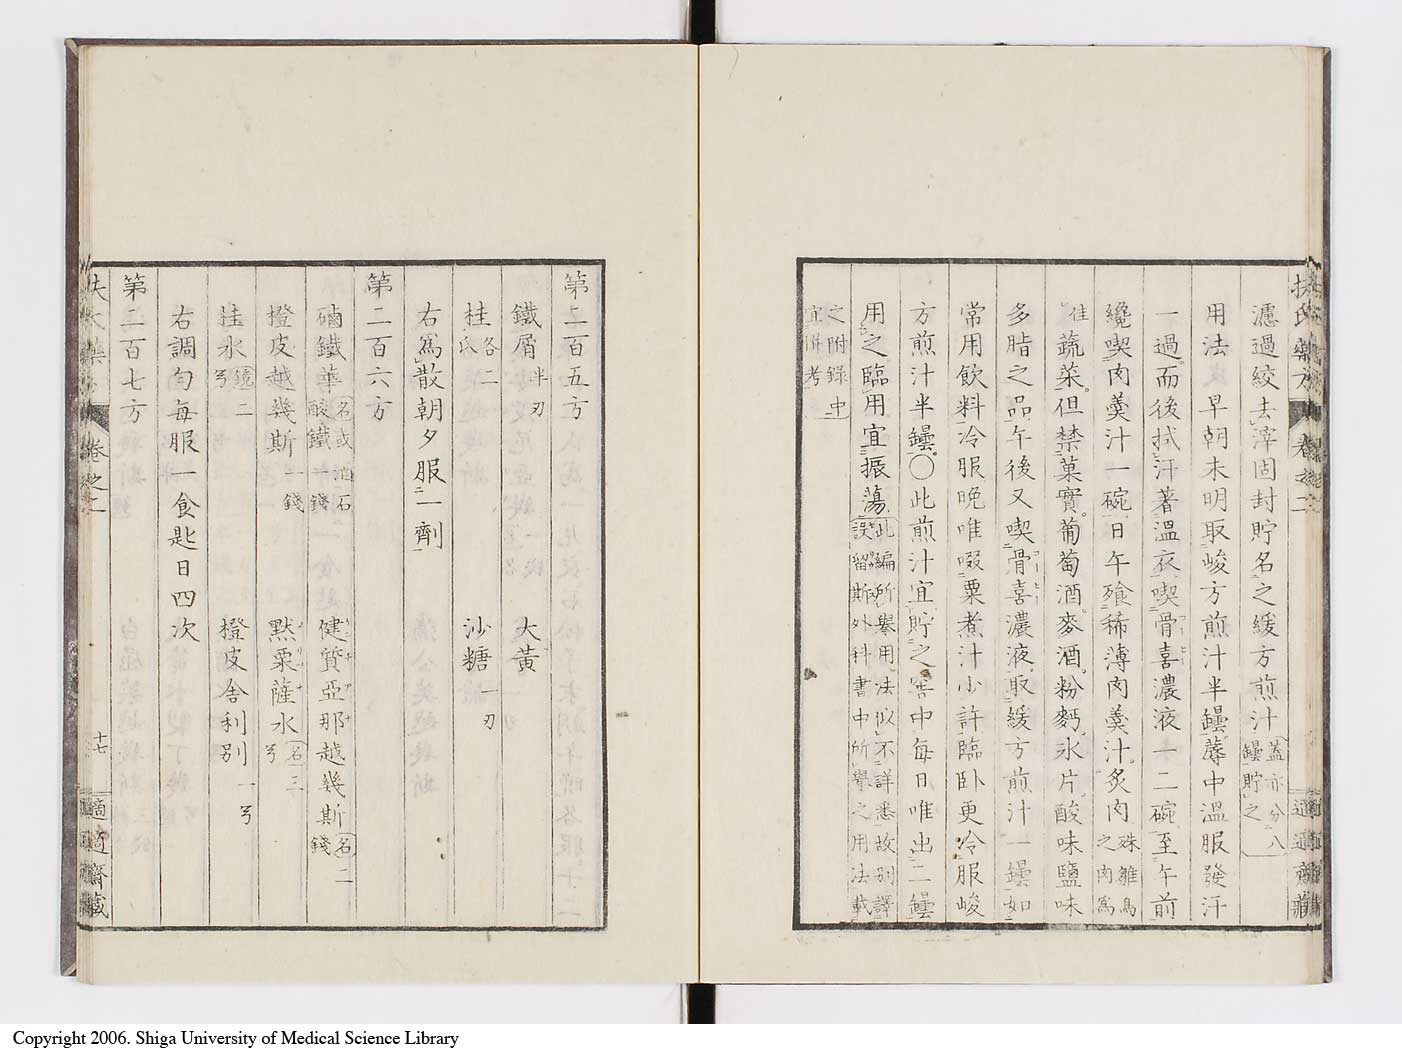 扶氏藥方 卷之二 適適齋藏
濾過絞去滓固封貯名之緩方煎汁蓋亦分八罎貯之
用法早朝未明取峻方煎汁半罎蓐中溫服發汗
一過而後拭汗著溫衣喫骨喜濃液一二碗至午前
纔喫肉羹汁一碗日午飱稀薄肉羹汁炙肉雉雛鳥之肉爲
佳蔬菜但禁菓實葡萄酒麥酒粉麪氷片酸味鹽味
多脂之品午後又喫骨喜濃液取緩方煎汁一罎如
常用飲料冷服晚唯啜粟煮汁少許臨臥更冷服峻
方煎汁半罎○此煎汁宜貯之窖中每日唯出二罎
用之臨用宜振蕩此編所擧用法似不詳悉故別譯設留斯外科書中所擧之用法載
之附錄中宜倂考
第二百五方
鐵屑半刃 大黃
桂各二氏 沙糖一刃
右爲散朝夕服一劑
第二百六方
磠鐵華名或消石酸鐵錢 健質亞那越幾斯名二錢
橙皮越幾斯一錢 默栗薩水名三弓
桂水鏡二弓 橙皮舍利別一弓
右調勻每服一食匙日四次
第二百七方
扶氏藥方 卷之二 十七 適適齋藏
Copyright 2006. Shiga University of Medical Science Library